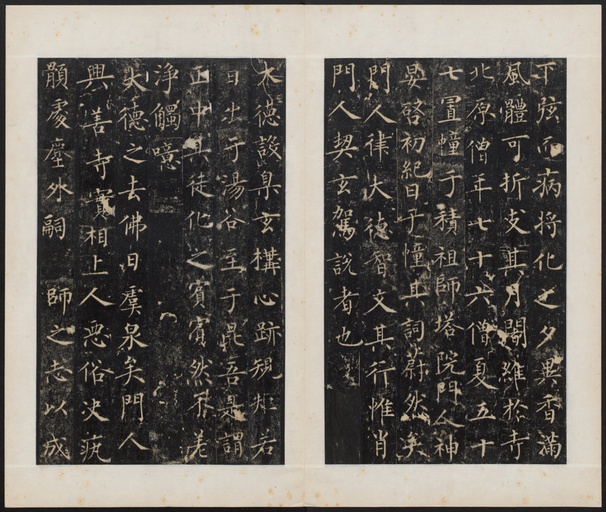 下弦而病將化之夕異香滿
風體可折支其月闍維於寺
北原僧年七十六僧夏五十
七置幢于積祖師塔院門人神
晏啓初紀日予幢且詞蔚然矣
門人律大德智文其行惟肖
門人契玄駕說者也
大德設臬玄構心跡規矩若
日出于湯谷至于昆吾是謂
正中其徒化之賓賓然不差
淨觸噫
大德之去佛日虞泉矣門人
興善寺實相上人惡俗決疣
顥處塵外嗣 師之志以成